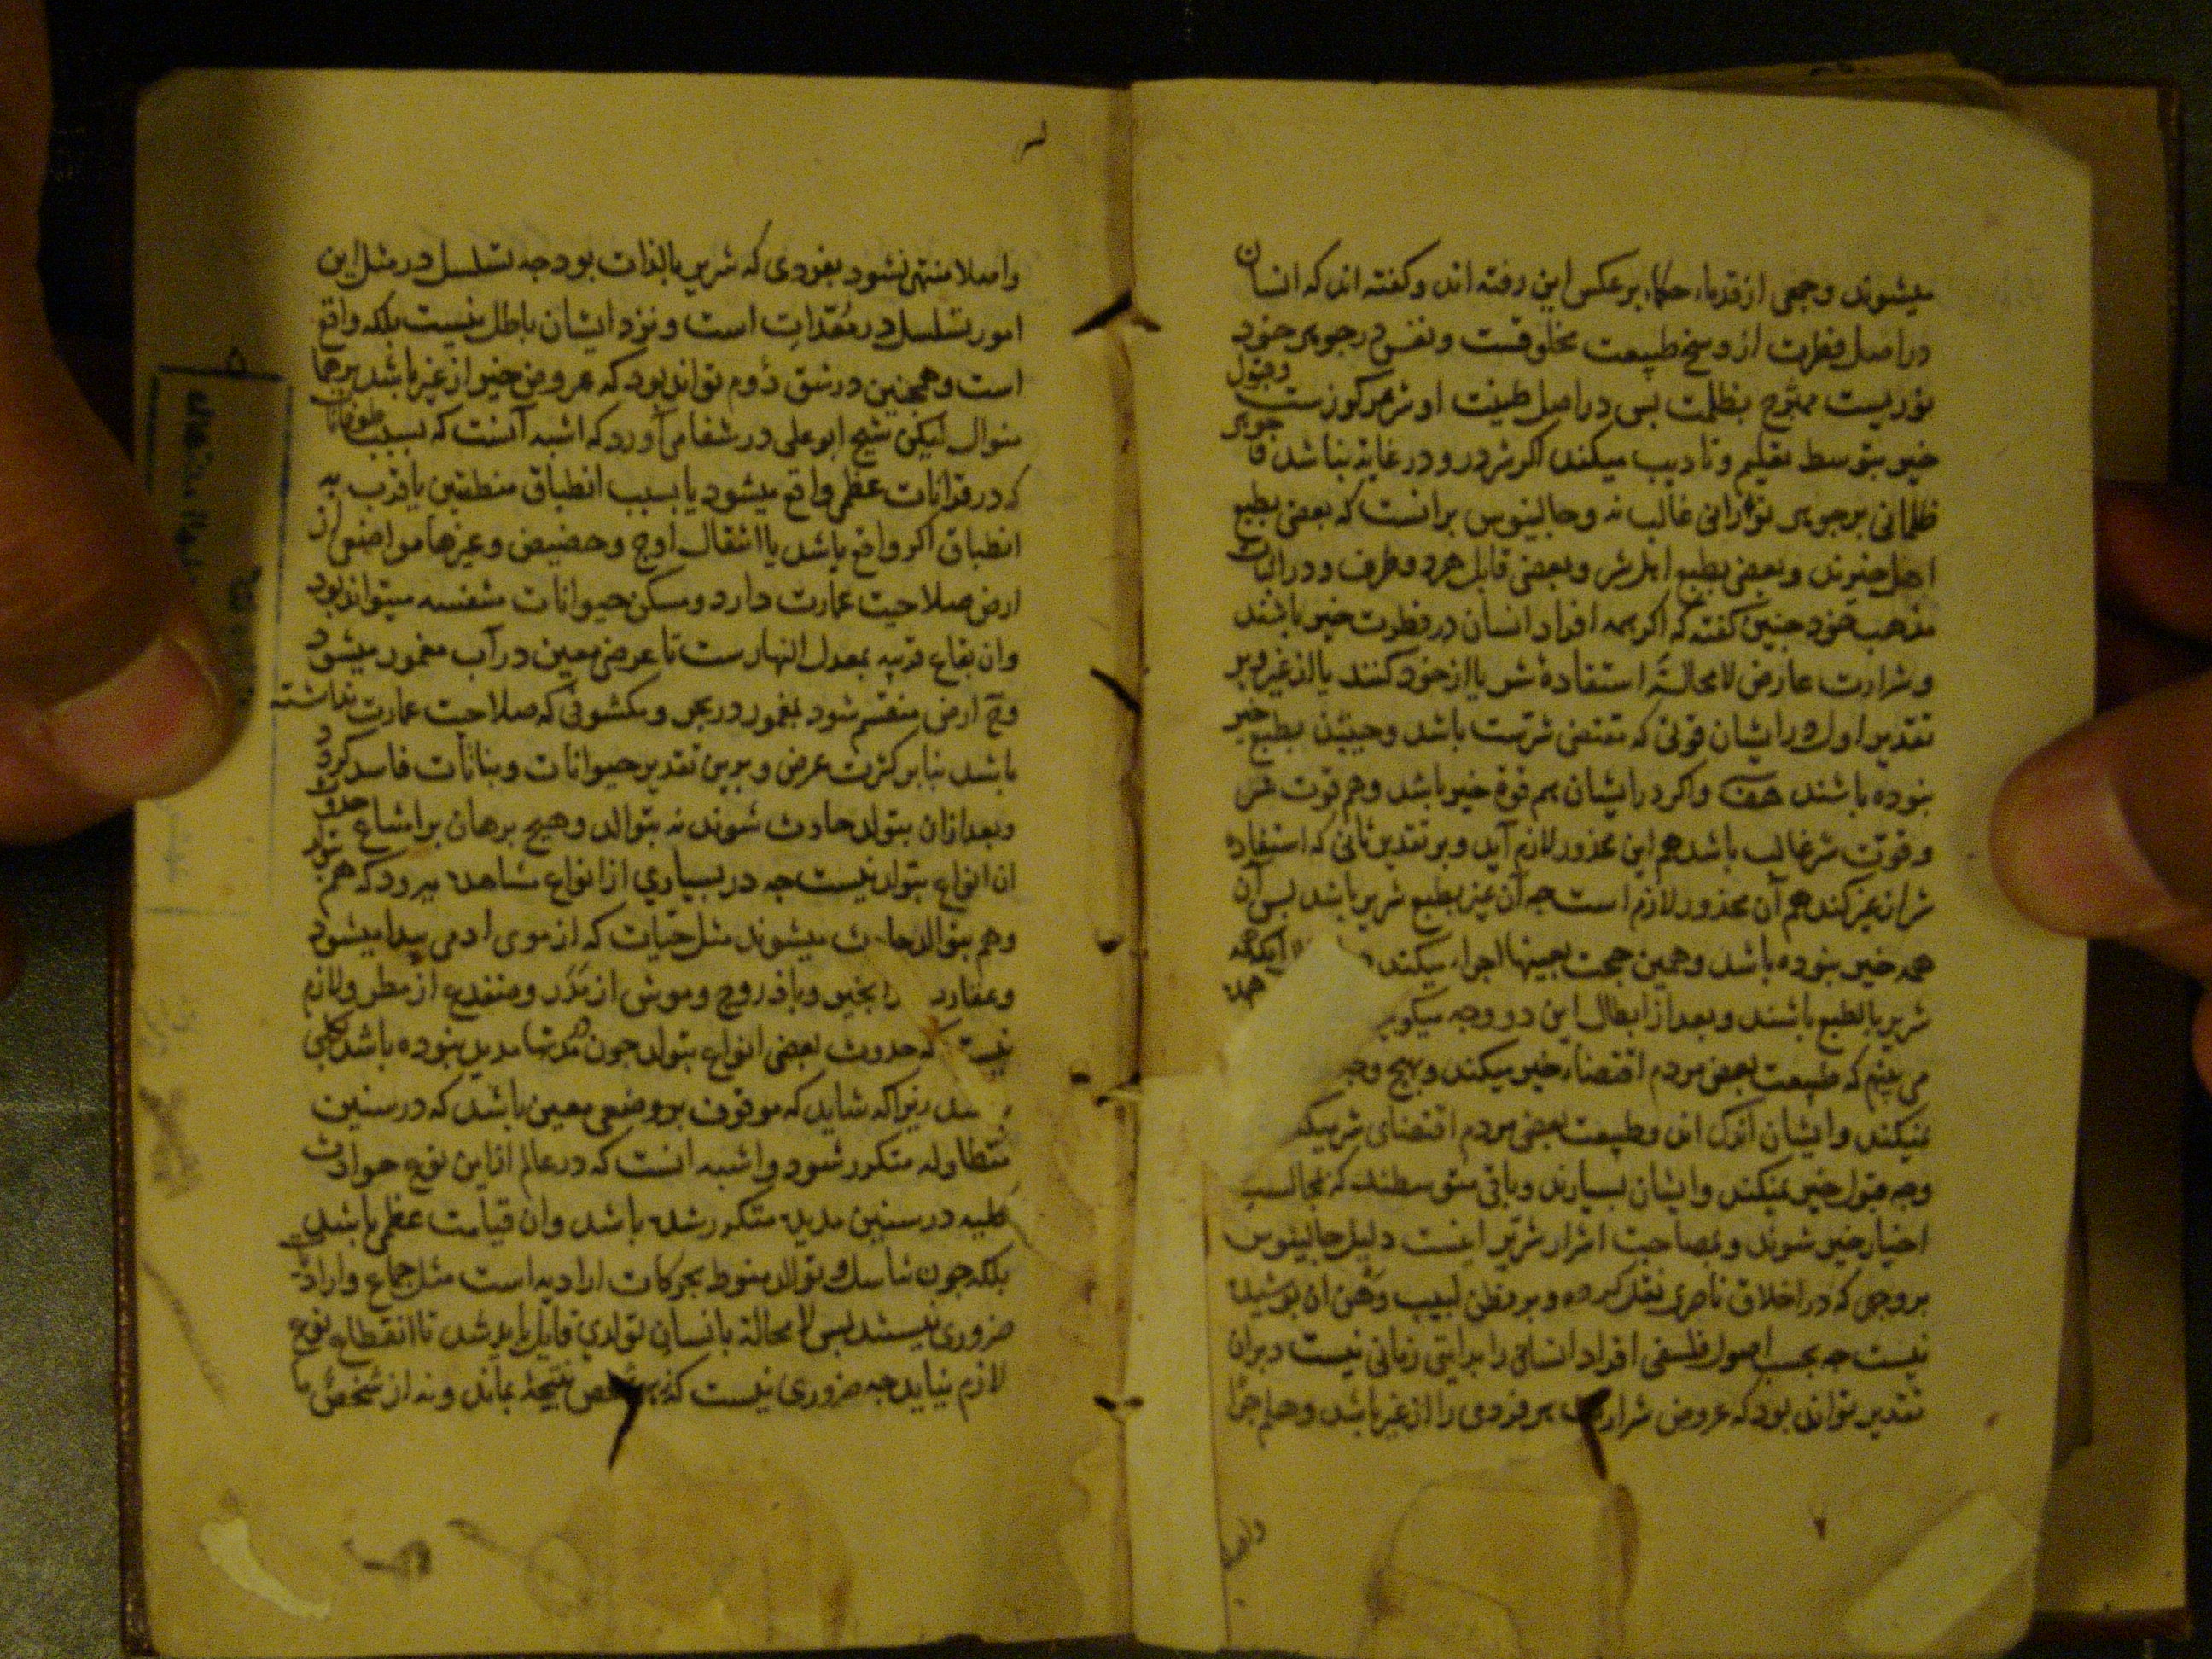 میشوند و جمعی از قدماء حکما بر عکس این رفته اند و کفته اند که انسان
در اصل فطرت از وسخ طبیعت مخلوقست و نفس در جوهر خود
نوریست ممتزج بظلمت بس در اصل طینت او شر مرکوزست و قبول
خیر بتوسط تعلیم و تادیب میکند اکر شر در و در غایة نباشد و جوهر
ظلمانی بر جوهر نورانی غالب نه و جالینوس برانست که بعضی بطبع
اهل خیرند و بعضی بطبع اهل شر و بعضی قابل هر دو طرف و در اثبات
مذهب خود جنین کفته که اکر همه افراد انسان در فطرت خیر باشند
و شرارت عارض لامحالة استفادهٔ شر یا از خود کنند یا از غیر و بر
تقدیر اول در ایشان قوتی که مقتضی شرتست باشد و حینئذ بطبع خیر
نبوده باشند هف و اکر در ایشان هم قوة خیر باشد و هم قوت شر
و قوت شر غالب باشد هم این محذور لازم آید و بر تقدیر ثانی که استفاده
شر از غیر کند هم آن محذور لازم است جه آن غیر بطبع شریر باشد بس آن
همه خیر نبوده باشد و همین حجت بعینها اجرا میکند آنکه همه
شریر بالطبع باشند و بعد از ابطال این دو وجه میکوید
می بینم که طبیعت بعضی مردم اقتضاء خیر میکند و بهیج وجه
نمیکند و ایشان اندک اند و طبیعت بعضی مردم اقتضای شر میکند
وجه قبول خیر نمیکند و ایشان بسیارند و باقی متوسطند که بمجالست
اخیار خیر شوند و بمصاحبت اشرار شریر اینست دلیل جالینوس
بر وجهی که در اخلاق ناصری نقل کرده و بر فطن لبیب وهن ان بوشیده
نیست جه بحسب اصول فلسفی افراد انسانی را بدایتی زمانی نیست و بران
تقدیر تواند بود که عروض شرارت هر فردی را از غیر باشد و هلم جرا
واصلا منتهی نشود بفردی که شریر بالذات بود جه تسلسل در مثل این
امور تسلسل در معدات است و نزد ایشان باطل نیست بلکه واقع
است و همجنین در شق دوم تواند بود که عروض خیر از غیر باشد بر همان
منوال لیکن شیخ ابو علی در شفا می آورد که اشبه آنست که بسبب طوفانات
که در قرانات عظمی واقع میشود یا بسبب انطباق منطقتین یا قرب به
انطباق اکر واقع باشد یا انتقال اوج و حضیض و غیرها مواضعی از
ارض صلاحیت عمارت دارد و مسکن حیوانات متنفسه میتواند بود
وان بقاع قریبه بمعدل النهارست تا عرض معین در آب مغمور میشود
وح ارض منقسم شود بمغمور در بحر و مکشوفی که صلاحیت عمارت نداشته
باشد بنا بر کثرت عرض و برین تقدیر حیوانات و نباتات فاسد کردد
و بعد ازان بتولد حادث شوند نه بتوالد و هیج برهان بر امتناع حدوث
ان انواع بتولد نیست جه در بسیاری از انواع مشاهده میرود که هم بتولد
و هم بتوالد حادث میشوند مثل حیات که از موی ادمی بیدا میشود
و عقارب انجیر و باذروج و موش از مدر و ضفدع از مطر و لازم
نیست که حدوث بعضی انواع بتولد جون در مدتها مدید نبوده باشد
زیراکه شاید که موقوف بر وضعی معین باشد که در سنین
متطاوله متکرر شود و اشبه انست که در عالم ازین نوع حوادث
کلیه در سنین مدیده متکرر شده باشد وان قیامت عظمی باشد
بلکه جون تناسل و توالد منوط بحرکات ارادیه است مثل جماع و ارادت
ضروری نیستند بس لامحالة بانسان تولدی قایل باید شد تا انقطاع نوع
لازم نیاید جه ضروری نیست که از هر شخص نتیجهٔ بماند و نه از شخصی ما